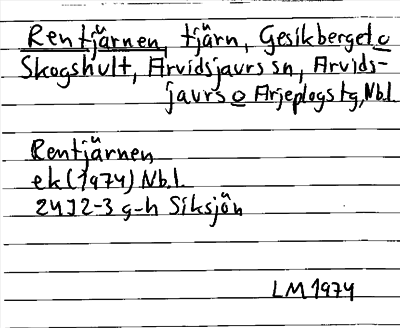 Rentjärnen, tjärn, Gesikberget o
Skogshult, Arvidsjaurs sn, Arvids-
jaurs o Arjeplogs tg, Nbl.
Rentjärnen
ek (1974) Nb.l.
24J2-3 g-h Siksjön
LM 1974